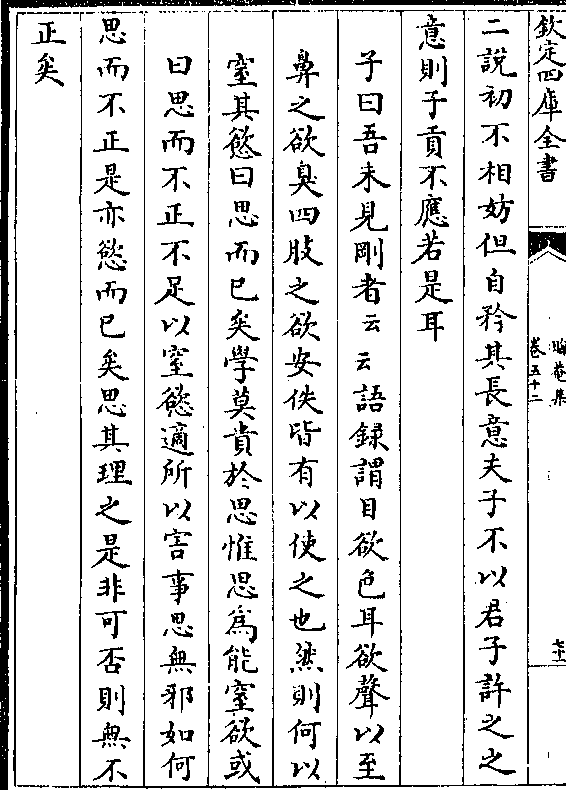 欽定四庫全書
晦菴集
卷五十二
二說初不相妨但自矜其長意夫子不以君子許之之
意則子貢不應若是耳
子曰吾未見剛者云云語錄謂目欲色耳欲聲以至
鼻之欲臭四肢之欲安佚皆有以使之也然則何以
窒其慾曰思而已矣學莫貴於思惟思為能窒欲或
曰思而不正不足以窒慾適所以害事思無邪如何
思而不正是亦慾而已矣思其理之是非可否則無不
正矣